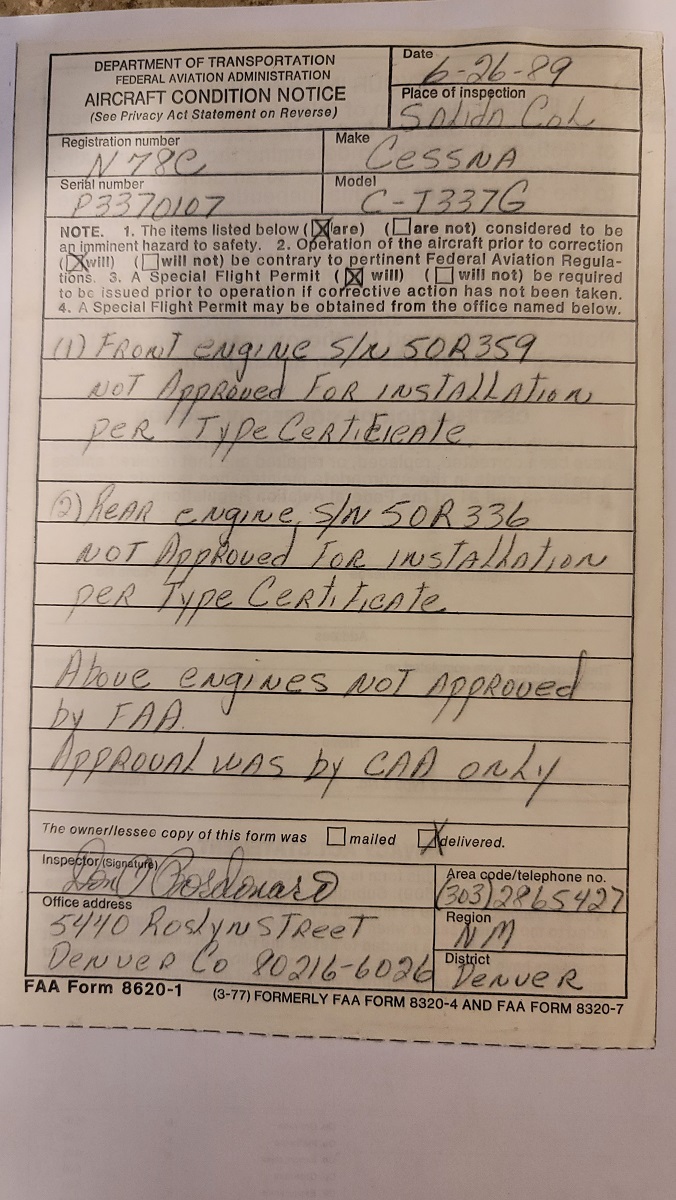 DEPARTMENT OF TRANSPORTATION
FEDERAL AVIATION ADMINISTRATION
AIRCRAFT CONDITION NOTICE
(See Privacy Act Statement on Reverse)
Date
6-26-89
Place of inspection
Salida Col
Registration number
N 78C
Make
Cessna
Serial number
P3370107
Model
C-T337G
NOTE. 1. The items listed below (☒are) (☐are not) considered to be
an imminent hazard to safety. 2. Operation of the aircraft prior to correction
(☒will) (☐will not) be contrary to pertinent Federal Aviation Regula-
tions. 3. A Special Flight Permit (☒ will) (☐ will not) be required
to be issued prior to operation if corrective action has not been taken.
4. A Special Flight Permit may be obtained from the office named below.
(1) Front engine S/N 50R359
not Approved For installation
per Type Certificate
(2) Rear engine S/N 50R336
not Approved For installation
per Type Certificate
Above engines not approved
by FAA.
Approval was by CAA only
The owner/lessee copy of this form was ☐ mailed ☒ delivered.
Inspector (Signature)
Area code/telephone no.
(303) 2865427
Office address
5440 Roslyn Street
Denver Co 80216-6026
Region
NM
District
Denver
FAA Form 8620-1 (3-77) FORMERLY FAA FORM 8320-4 AND FAA FORM 8320-7